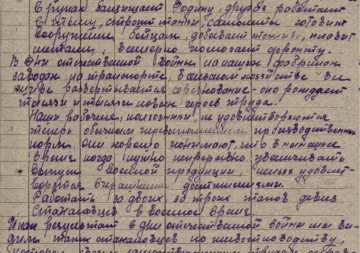 в руках защищает Родину, другая работает
в тылу, строит танки, самолеты, готовит
вооружение бойцам, добывает топливо, плавит
металл, всемерно помогает фронту.
В дни отечественной войны на наших фабриках
заводах, на транспорте, в сельском хозяйстве все
шире развертывается соревнование – оно рождает
тысячи и тысячи новых героев труда.
Наши рабочие, колхозники не удовлетворяются
теперь обычным перевыполнением производственных
норм. Они хорошо понимают, что в настоящее
время когда нужно непрерывно увеличивать
выпуск военной продукции нельзя удовлет-
воряться вчерашними достижениями.
Работать за двоих за троих таков девиз
Стахановцев в военное время.
результат в дни отечественной войны мы ви-
дим стахановцев по животноводству,